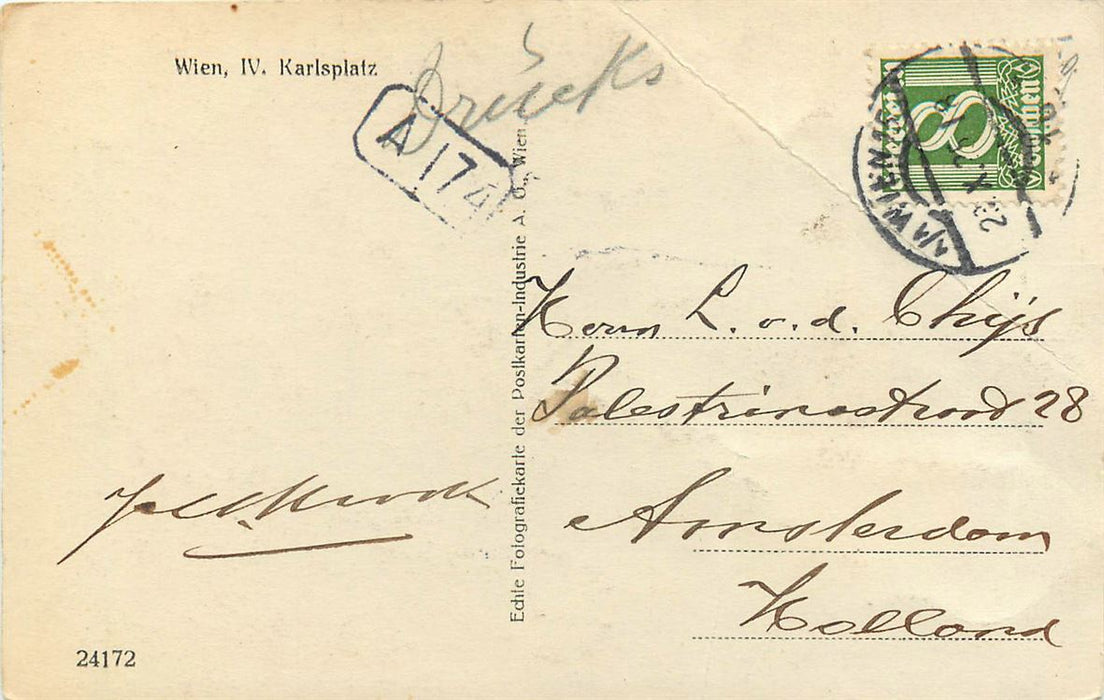 Wien, IV. Karlsplatz
Drucks
A 174
8
Groschen
WIEN
Echte Fotografiekarte der Postkarten-Industrie A. G., Wien
Herrn L. v. d. Chijs
Palestrinastraat 28
Amsterdam
Holland
24172